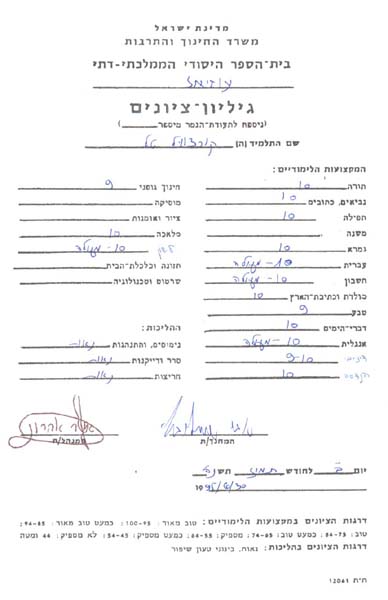 מדינת ישראל
משרד החינוך והתרבות
בית-הספר היסודי הממלכתי-דתי
עוזיאל
גיליון-ציונים
(ניספח לתעודת-הגמר מיספר)
שם התלמיד (ה) טל
המקצועות הלימודיים:
תורה 10
נביאים, כתובים 10
תפילה 10
משנה
גמרא 10
עברית 10 - מעולה
חשבון 10 - מעולה
מולדת וכתיבת-הארץ 10
טבע 9
דברי-הימים 10
אנגלית 10 - מעולה
דינים 9-10
הנדסה 10
חינוך גופני 9
מוסיקה
ציור ואומנות
מלאכה 10
לשון 10 - מעולה
תזונה וכלכלת-הבית
שרטוט וטכנולוגיה
ההליכות:
נימוסים, והתנהגות נאות
סדר ודייקנות נאות
חריצות נאות
אהרון
המנהל/ת
המחנך/ת
יום ב לחודש תמוז תשנ"ה
30/6/1995
דרגות הציונים במקצועות הלימודיים: טוב מאוד: 100-95: כמעט טוב מאוד: 94-85:
טוב: 84-75: כמעט טוב: 74-65: מספיק: 64-55: כמעט מספיק: 54-45: לא מספיק: 44 ומטה
דרגות הציונים בהליכות: נאות, בינוני טעון שיפור
ח"ת 12041